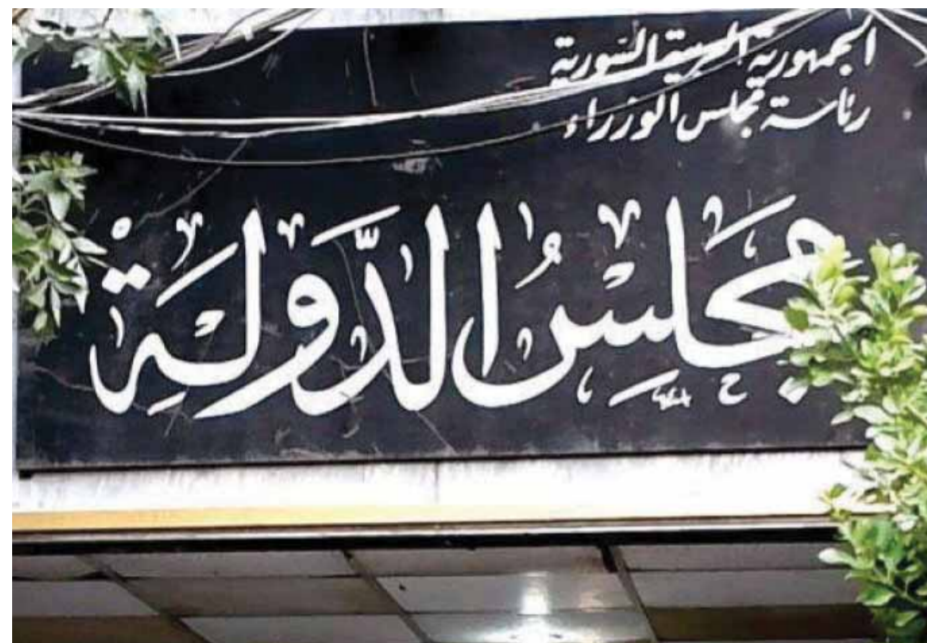 الجمهورية العربية السورية
رئاسة مجلس الوزراء
مجلس الدولة